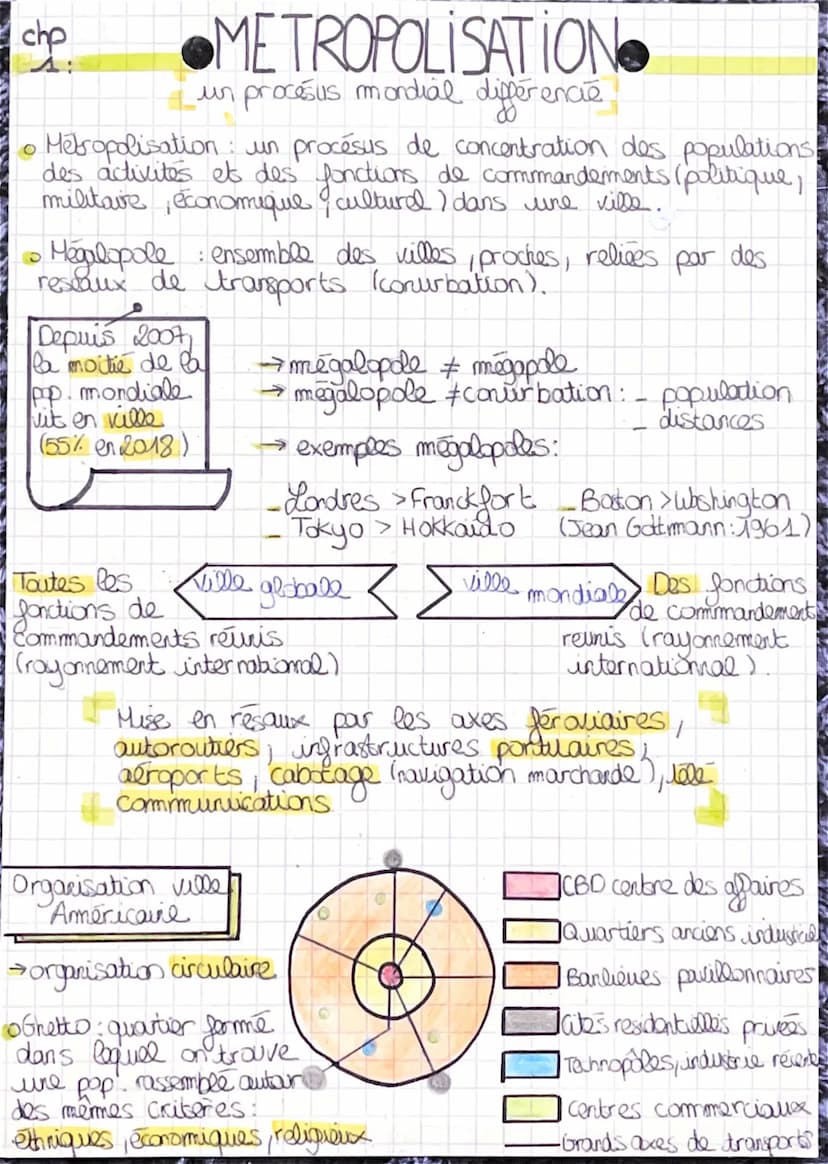 chp 1:
METROPOLiSATiON
un procésus mondial différencié
Métropolisation : un procésus de concentration des populations
des activités et des fonctions de commandements (politique,
militaire, économique & culturel) dans une ville.
Mégalopole : ensemble des villes, proches, reliées par des
reseaux de transports (conurbation).
Depuis 2007,
la moitié de la
pop. mondiale
vit en ville
(55% en 2018)
→ mégalopole ≠ mégapole
→ mégalopole ≠ conurbation : - population
- distances
→ exemples mégalopoles:
- Londres > Franckfort - Boston > Washington
- Tokyo > Hokkaido (Jean Gottmann: 1961)
ville globale
Toutes les
fonctions de
commandements réunis
(rayonnement international)
ville mondiale
Des fonctions
de commandement
reunis (rayonnement
internationnal).
Mise en résaux par les axes féroviaires,
autoroutiers, infrastructures portuaires,
aéroports, cabotage (navigation marchande), télé
communications
Organisation ville
Américaine
→ organisation circulaire
Ghetto : quartier formé
dans lequel on trouve
une pop. rassemblé autour
des mêmes critères :
éthniques, économiques, religieux
CBD centre des affaires
Quartiers anciens, industriel
Banlieues pavillonnaires
Cités residentielles privées
Technopôles, industrie récente
Centres commerciaux
Grands axes de transports